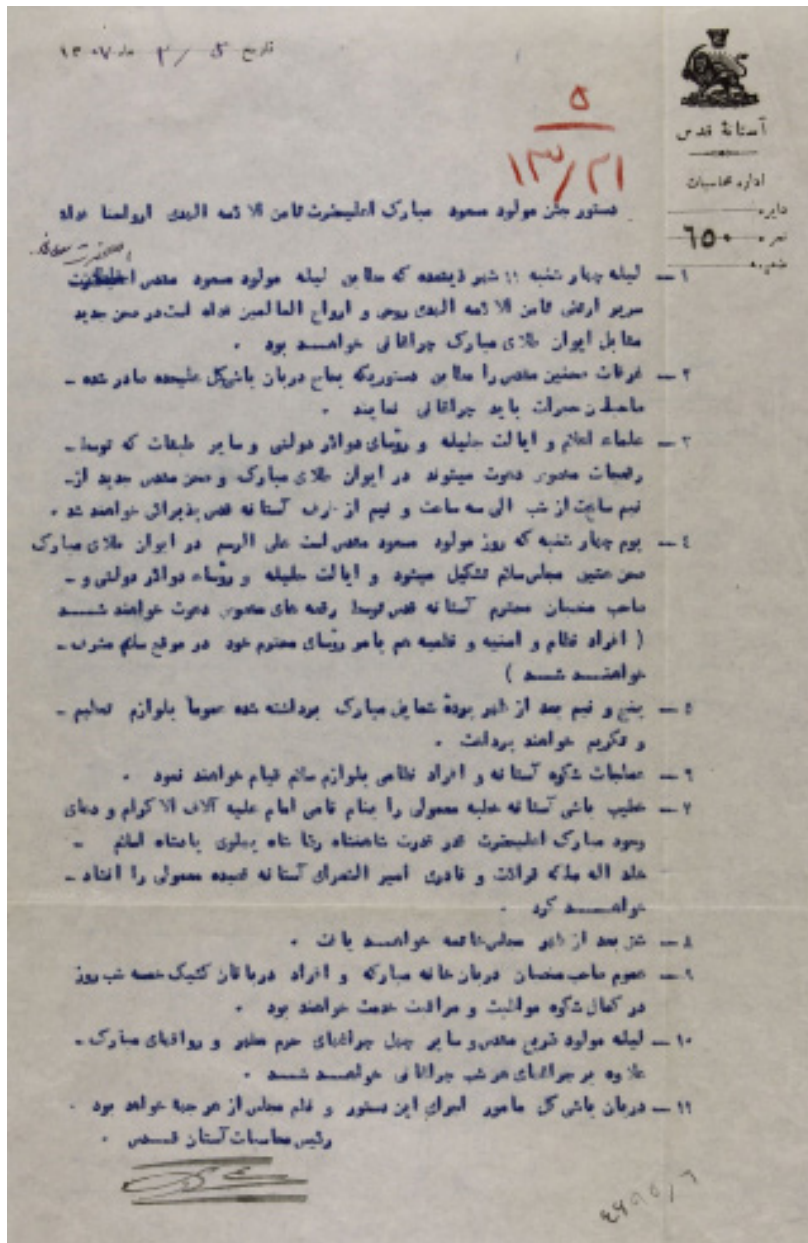 تاریخ ۵ / ۲ ماه ۱۳۰۷
۵
۱۳/۲۱
آستانهٔ قدس
اداره محاسبات
دایره
نمره ٦٥٠
ضمیمه
دستور جشن مولود مسعود مبارک اعلیحضرت ثامن الا ئمه الهدی ارواحنا فداه
۱ — لیله چهار شنبه ۱۱ شهر ذیقعده که مطابق لیله مولود مسعود مقدس
سریر ارتضی ثامن الا ئمه الهدی روحی و ارواح العالمین فداه است در صحن جدید
مقابل ایوان طلای مبارک چراغانی خواهند بود .
۲ — غرفات صحنین مقدس را مطابق دستوریکه بجناب دربان باشی کل علیحده صادر شده —
باید چراغانی نمایند .
۳ — علماء اعلام و ایالت جلیله و رؤسای دوائر دولتی و سایر طبقات که توسط —
رقعجات مخصوص دعوت میشوند در ایوان طلای مبارک و صحن مقدس جدید از —
نیم ساعت از شب الی سه ساعت و نیم از طرف آستانه قدس پذیرائی خواهند شد .
٤ — یوم چهار شنبه که روز مولود مسعود مقدس است علی الرسم در ایوان طلای مبارک
صحن عتیق مجلس سلام تشکیل میشود و ایالت جلیله و رؤساء دوائر دولتی و —
صاحب منصبان محترم آستانه قدس توسط رقعه های مخصوص دعوت خواهند شد
( افراد نظام و امنیه و نظمیه هم با رؤسای محترم خود در موقع سلام مشرف —
خواهند شد )
٥ — پنج و نیم بعد از ظهر بودهٔ شمایل مبارک برداشته شده عموماً بلوازم تعظیم —
و تکریم خواهند پرداخت .
٦ — عملجات شکوه آستانه و افراد نظامی بلوازم سلام قیام خواهند نمود .
۷ — خطیب باشی آستانه خطبه معمولی را بنام نامی امام علیه آلاف الا کرام و دعای
وجود مبارک اعلیحضرت قدر قدرت شاهنشاه رضا شاه پهلوی پادشاه اسلام —
خلد اله ملکه قرائت و قادری امیر الشعرای آستانه قصیده معمولی را انشاد —
خواهند کرد .
۸ — شش بعد از ظهر مجلس خاتمه خواهند یافت .
۹ — عموم صاحب منصبان دربان خانه مبارکه و افراد دربانان کشیک خمسه شب روز
در کمال شکوه مواظبت و مراقبت خدمت خواهند بود .
۱۰ — لیله مولود ضریح مقدس و سایر چهل چراغهای حرم مطهر و رواقهای مبارک —
علاوه بر چراغهای هر شب چراغانی خواهند شد .
۱۱ — دربان باشی کل مامور اجرای این دستور و نظم مجلس از هر جهة خواهد بود .
رئیس محاسبات آستان قدس .